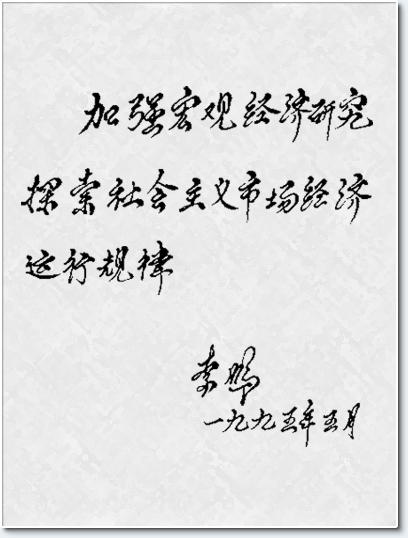 加强宏观经济研究
探索社会主义市场经济
运行规律
李鹏
一九九五年五月